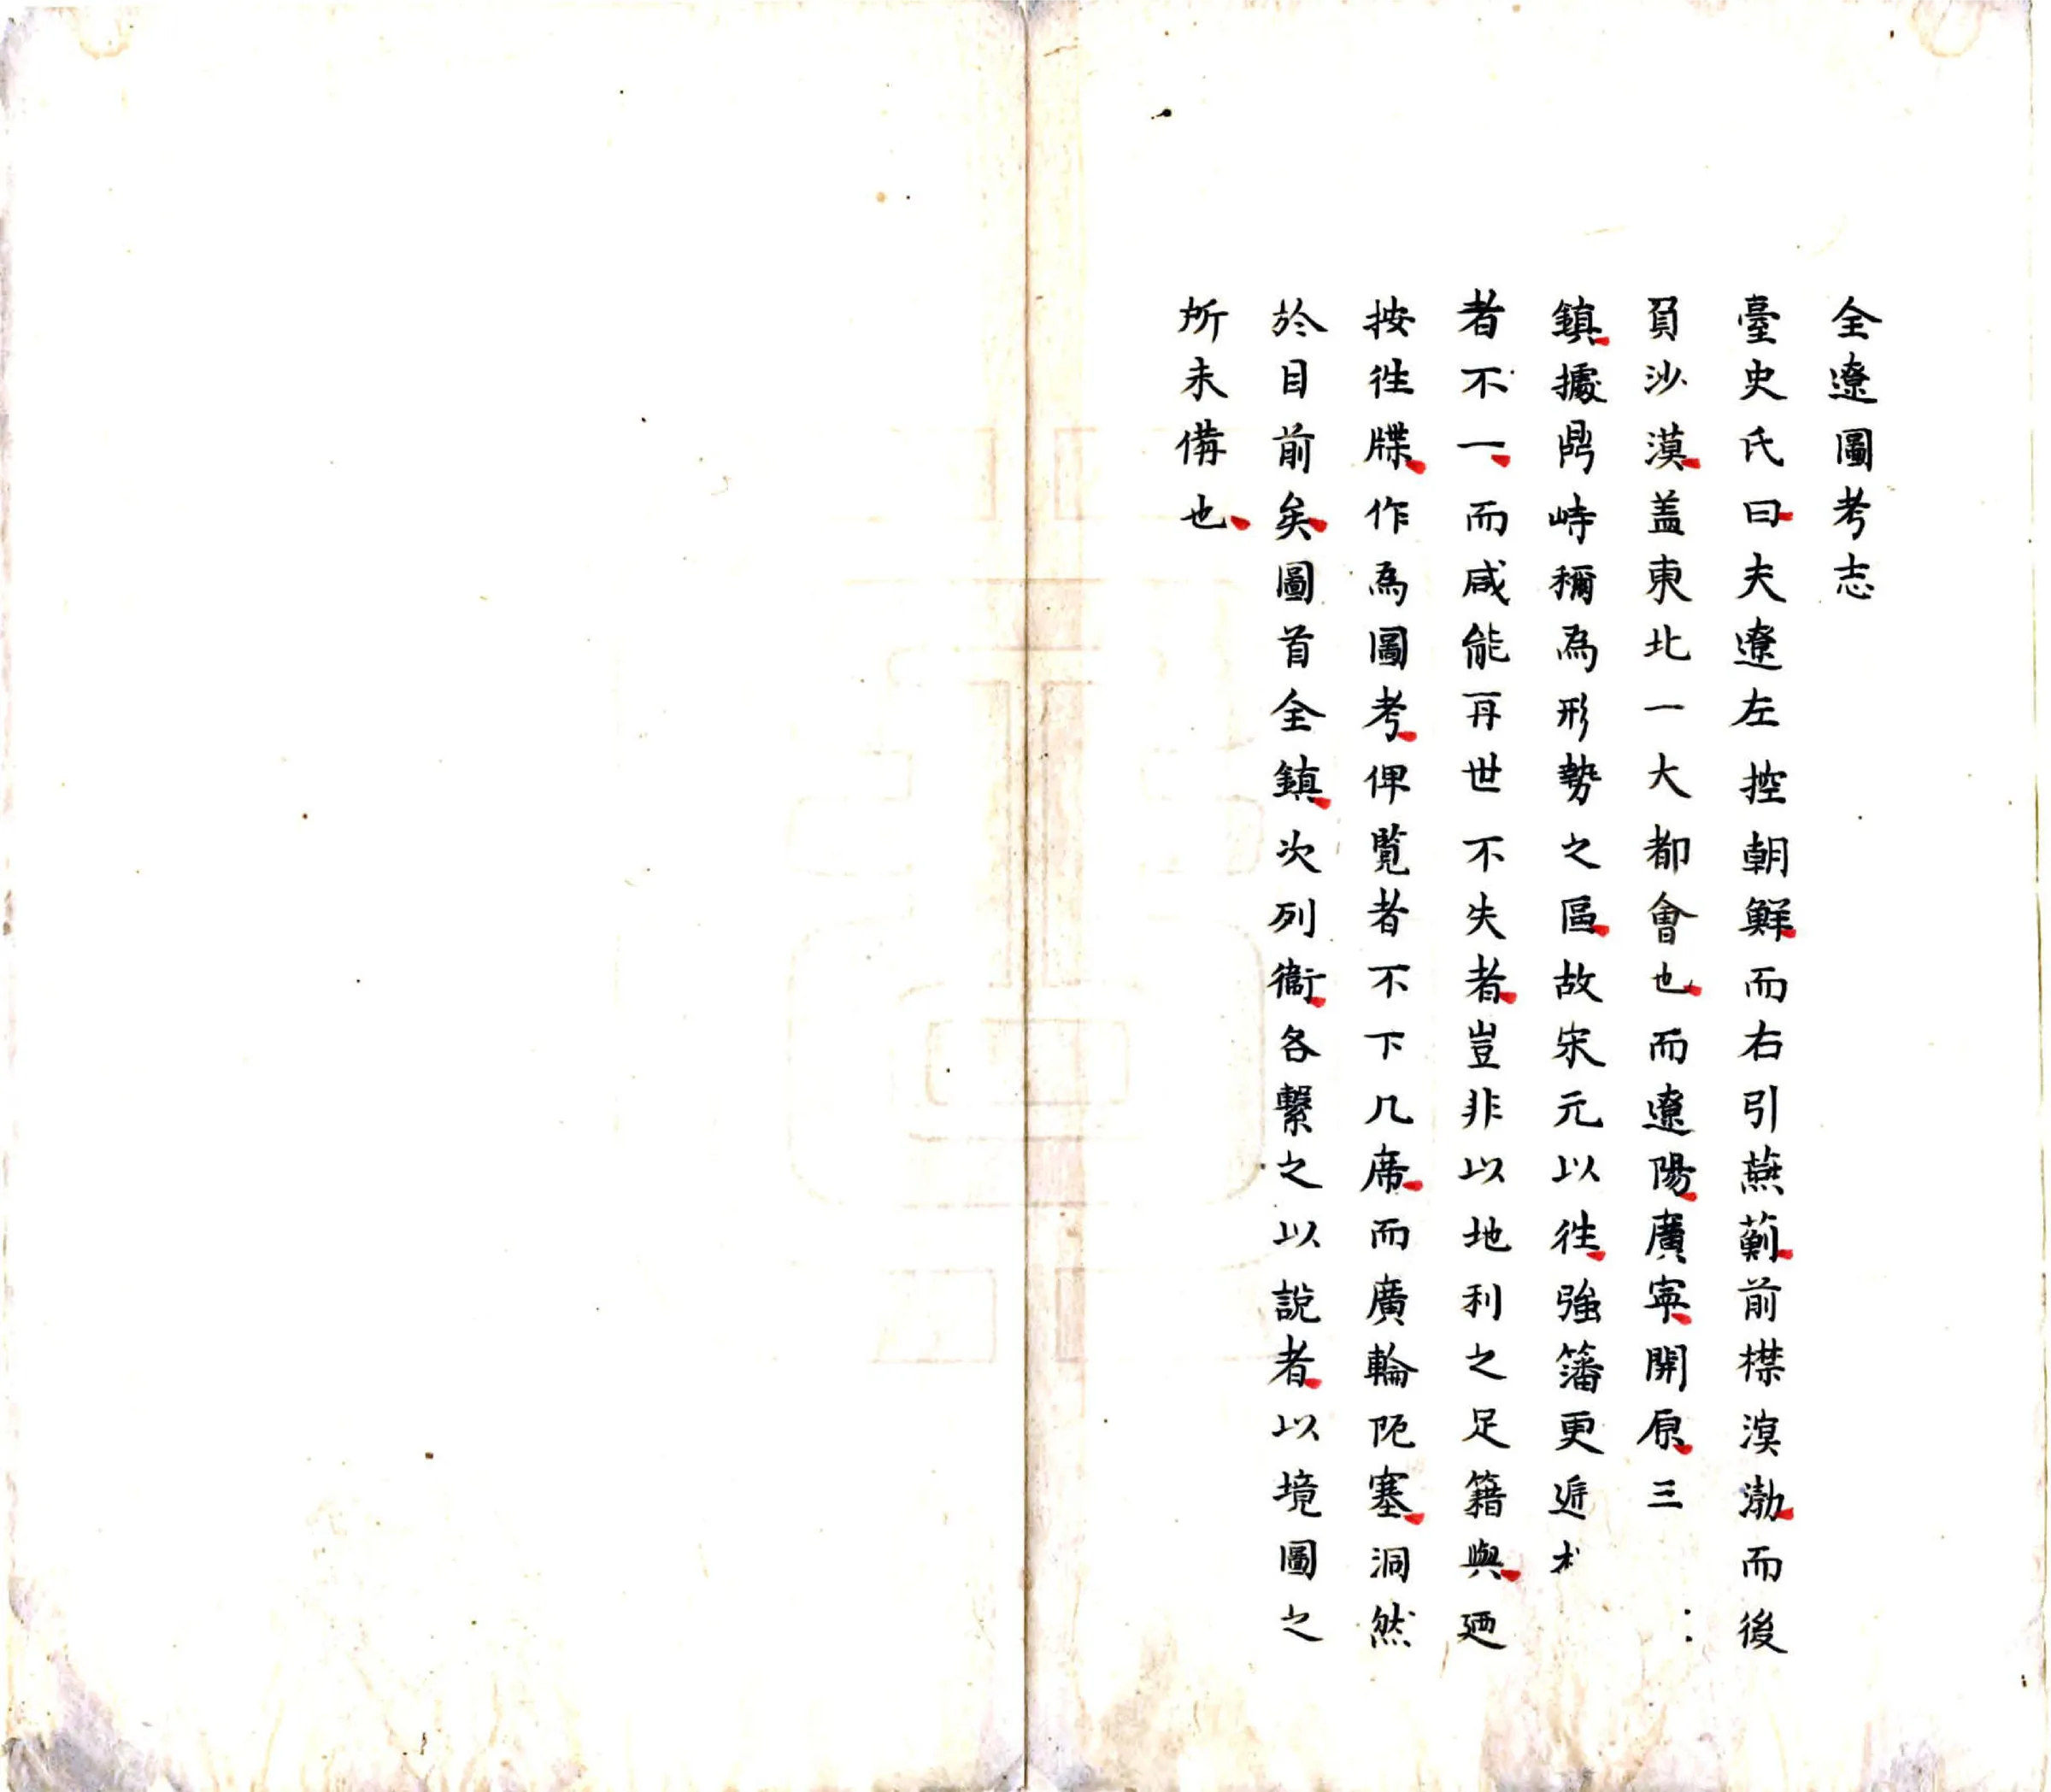 全遼圖考志
臺史氏曰夫遼左控朝鮮而右引燕薊前襟溟渤而後
負沙漠盖東北一大都會也而遼陽廣寧開原三
鎮據鼎峙稱為形勢之區故宋元以徃強籓更逓
者不一而咸能再世不失者豈非以地利之足籍與廼
按徃牒作為圖考俾覧者不下几席而廣輪阨塞洞然
於目前矣圖首全鎮次列衞各繫之以説者以境圖之
所未備也